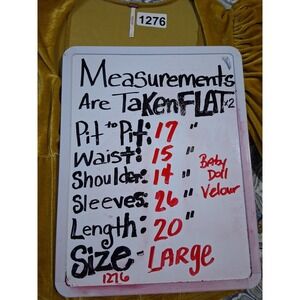 1276
Measurements
Are TaKenFLAT x2
Pit to Pit: 17 "
Waist: 15 "
Shoulder: 14 "
Sleeves: 26 "
Length: 20 "
Baby
Doll
Velour
Size - LARGE
1276